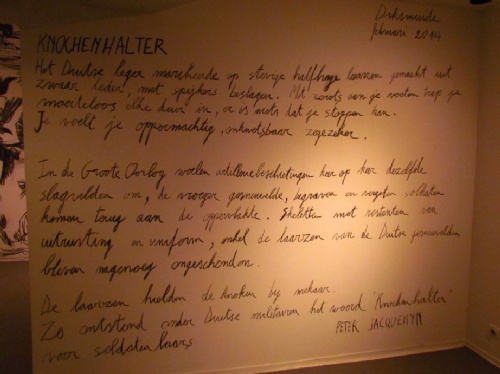 Diksmuide
februari 2014
KNOCHENHALTER
Het Duitse leger marcheerde op stevige halfhoge laarzen gemaakt uit
zwaar leder, met spijkers beslagen. Met zoiets aan je voeten trap je
moeiteloos elke deur in, er is niets dat je stoppen kan.
Je voelt je oppermachtig, onkwetsbaar zegezeker.
In de Groote Oorlog woelen artilleriebeschietingen keer op keer dezelfde
slagvelden om, de vroeger gesneuvelde, begraven en vergeten soldaten
komen terug aan de oppervlakte. Skeletten met restanten van
uitrusting en uniform, enkel de laarzen van de Duitse gesneuvelden
bleven nagenoeg ongeschonden.
De laarzen hielden de knoken bij mekaar.
Zo ontstond onder Duitse militairen het woord 'Knochenhalter'
voor soldatenlaars
PETER JACQUEMYN